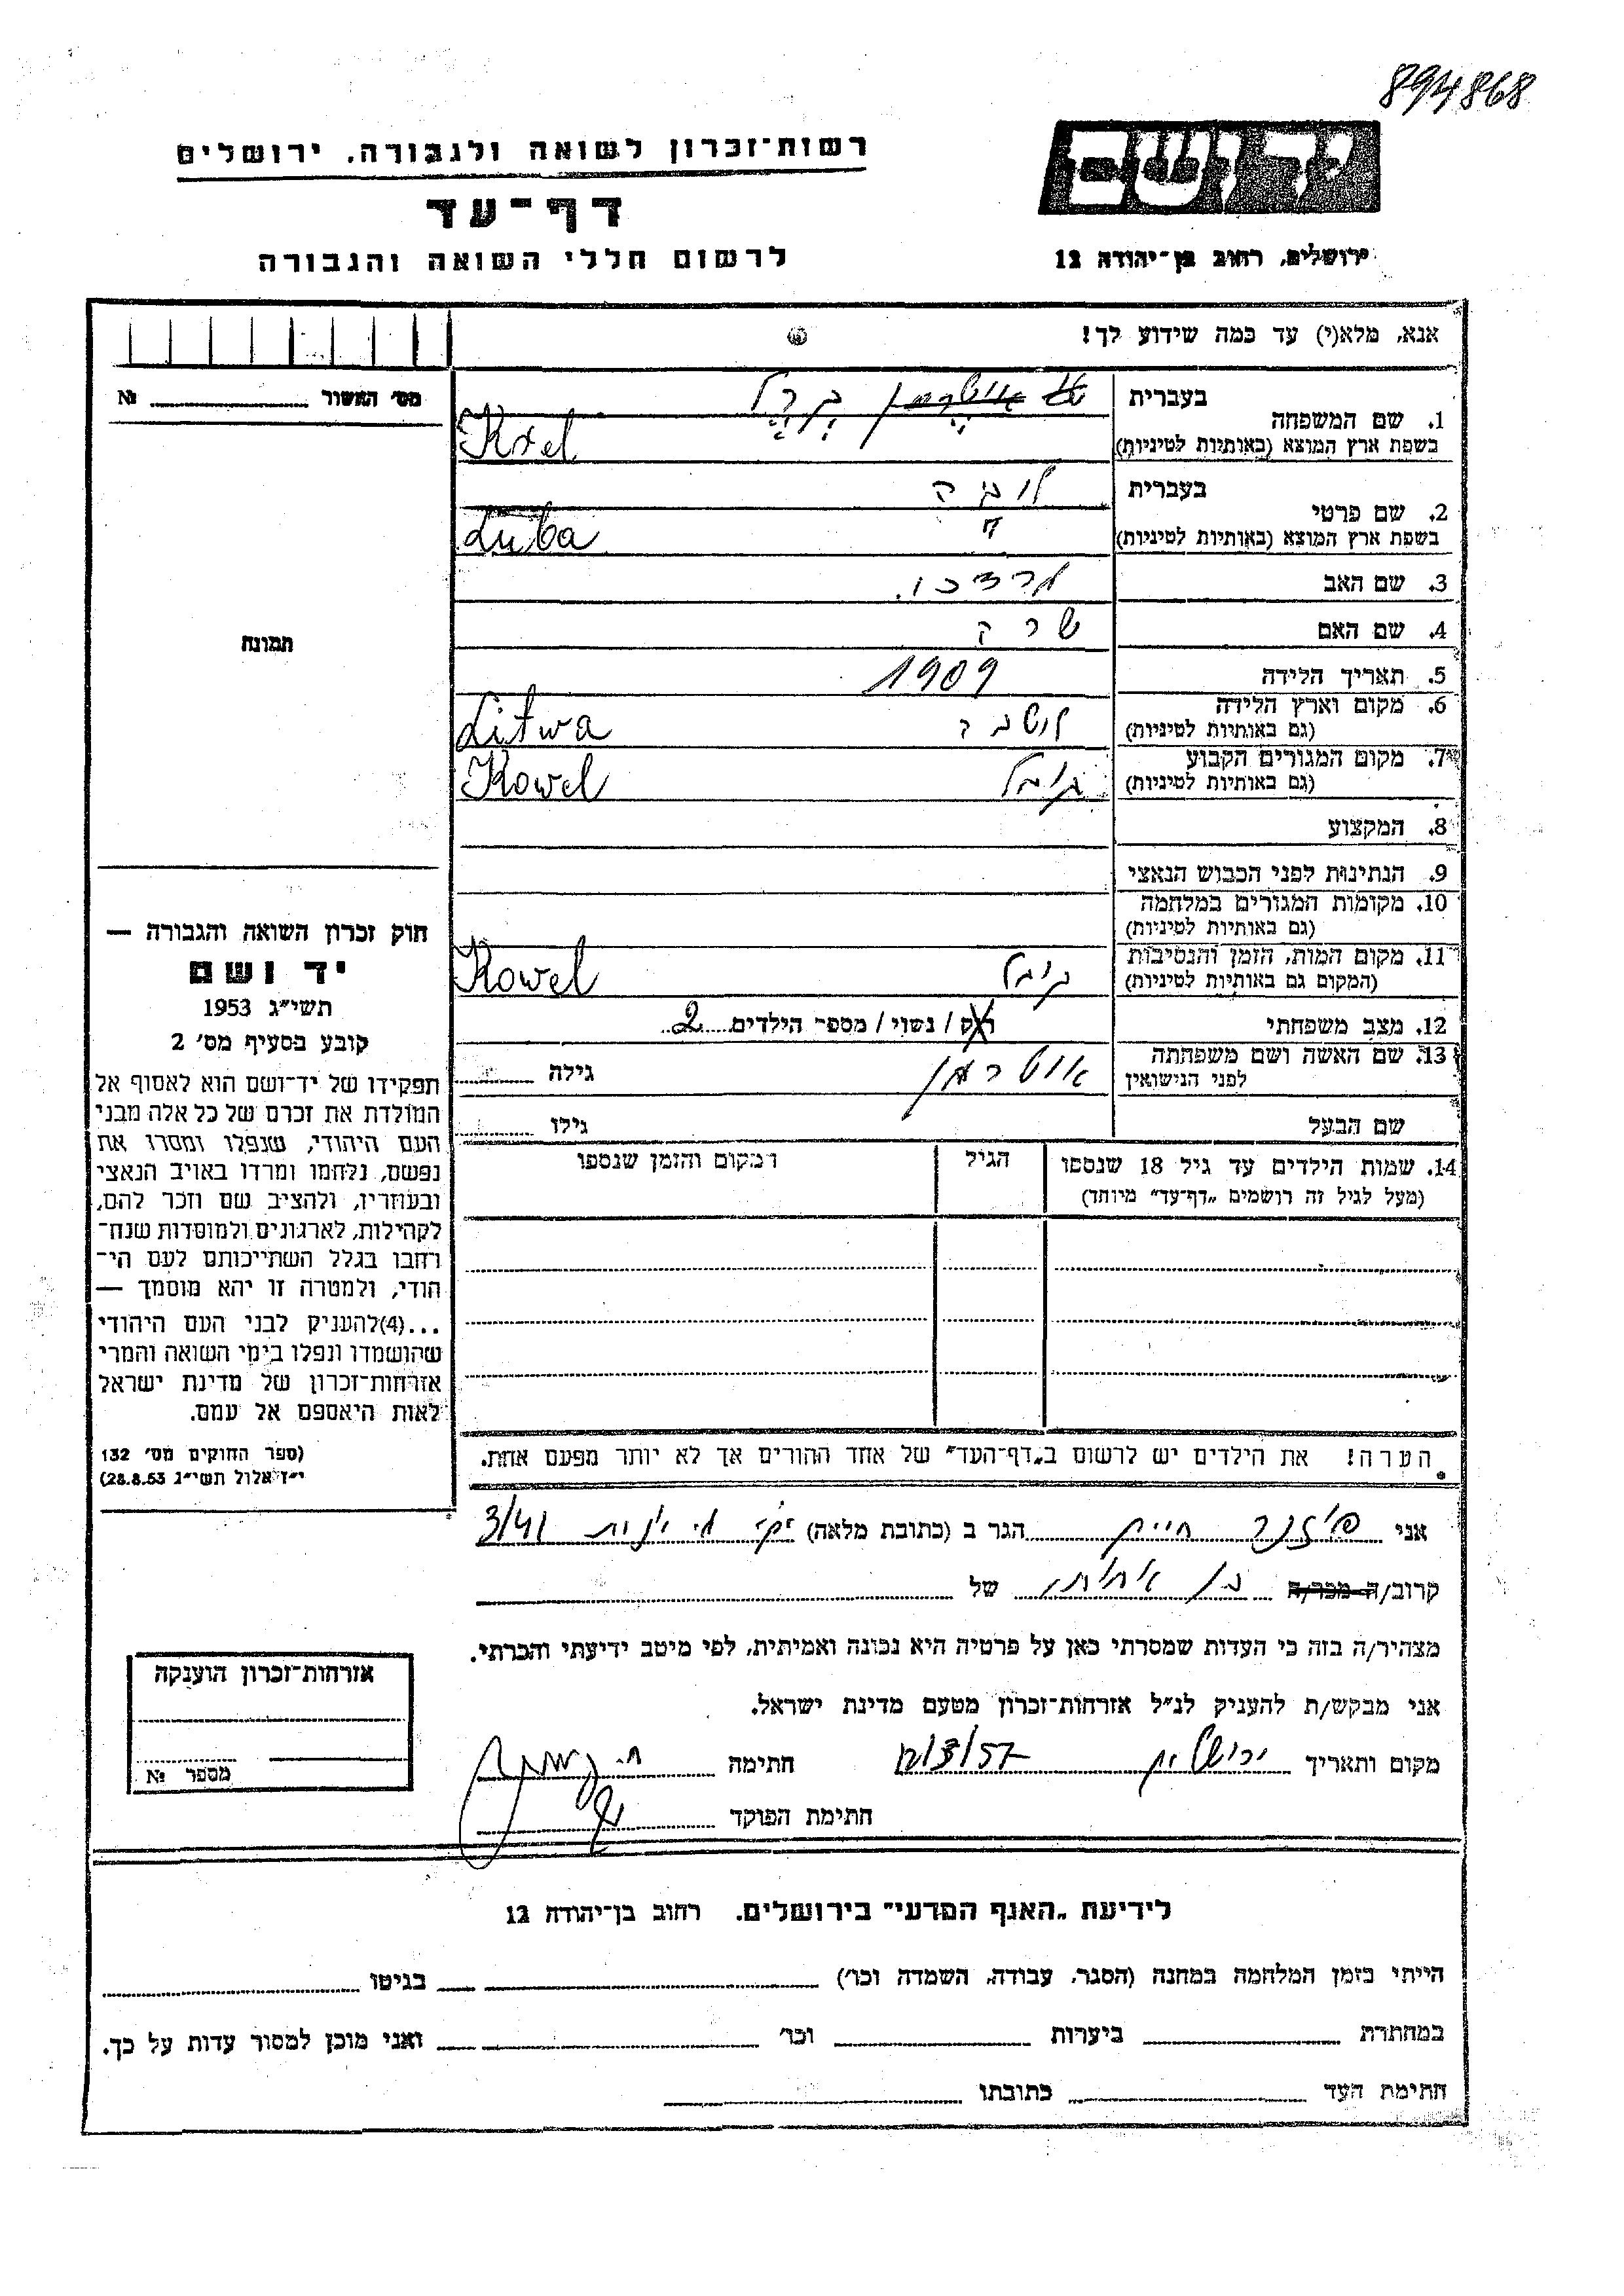 894868
יד ושם
ירושלים, רחוב בן־יהודה 12
רשות־זכרון לשואה ולגבורה, ירושלים
דף־עד
לרשום חללי השואה והגבורה
אנא, מלא(י) עד כמה שידוע לך!
מס׳ האשור № 
1. שם המשפחה
בעברית אוטרמן קרל
בשפת ארץ המוצא (באותיות לטיניות) Krel
2. שם פרטי
בעברית לובה
בשפת ארץ המוצא (באותיות לטיניות) Luba
3. שם האב מרדכי
4. שם האם שרה
5. תאריך הלידה 1909
6. מקום וארץ הלידה
(גם באותיות לטיניות) Litwa
7. מקום המגורים הקבוע קובל
(גם באותיות לטיניות) Kowel
8. המקצוע
9. הנתינות לפני הכבוש הנאצי
10. מקומות המגורים במלחמה
(גם באותיות לטיניות)
11. מקום המות, הזמן והנסיבות קובל
(המקום גם באותיות לטיניות) Kowel
12. מצב משפחתי רוק / נשוי / מספר הילדים 2
13. שם האשה ושם משפחתה אוטרמן גילה
לפני הנישואין
שם הבעל גילו
14. שמות הילדים עד גיל 18 שנספו הגיל המקום והזמן שנספו
(מעל לגיל זה רושמים „דף־עד״ מיוחד)
הערה! את הילדים יש לרשום ב„דף־העד״ של אחד ההורים אך לא יותר מפעם אחת.
תמונה
חוק זכרון השואה והגבורה —
יד ושם
תשי״ג 1953
קובע בסעיף מס׳ 2
תפקידו של יד־ושם הוא לאסוף אל
המולדת את זכרם של כל אלה מבני
העם היהודי, שנפלו ומסרו את
נפשם, נלחמו ומרדו באויב הנאצי
ובעוזריו, ולהציב שם וזכר להם,
לקהילות, לארגונים ולמוסדות שנח־
רחבו בגלל השתייכותם לעם הי־
הודי, ולמטרה זו יהא מוסמך —
...(4)להעניק לבני העם היהודי
שהושמדו ונפלו בימי השואה והמרי
אזרחות־זכרון של מדינת ישראל
לאות היאספם אל עמם.
(ספר החוקים מס׳ 132
י״ז אלול תשי״ג 28.8.53)
אני חיים הגר ב (כתובת מלאה) 3/41
קרוב/ה מכר/ה בן של
מצהיר/ה בזה כי העדות שמסרתי כאן על פרטיה היא נכונה ואמיתית, לפי מיטב ידיעתי והכרתי.
אני מבקש/ת להעניק לנ״ל אזרחות־זכרון מטעם מדינת ישראל.
מקום ותאריך ירושלים 12/3/57 חתימה
חתימת הפוקד
אזרחות־זכרון הוענקה
מספר №
לידיעת „האגף המדעי״ בירושלים, רחוב בן־יהודה 12
הייתי בזמן המלחמה במחנה (הסגר, עבודה, השמדה וכו׳) בגיטו
במחתרת ביערות וכו׳ ואני מוכן למסור עדות על כך.
חתימת העד כתובתו